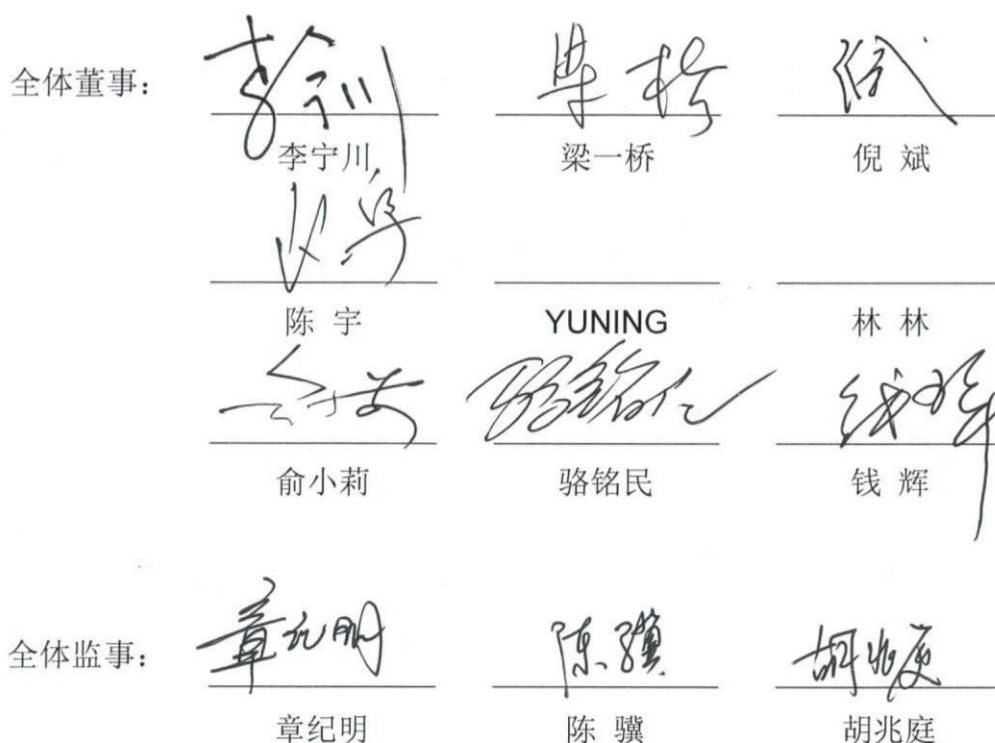 全体董事：
李宁川 梁一桥 倪 斌
陈 宇 YUNING 林 林
俞小莉 骆铭民 钱 辉
全体监事：
章纪明 陈 骥 胡兆庭
章纪明 陈 骥 胡兆庭